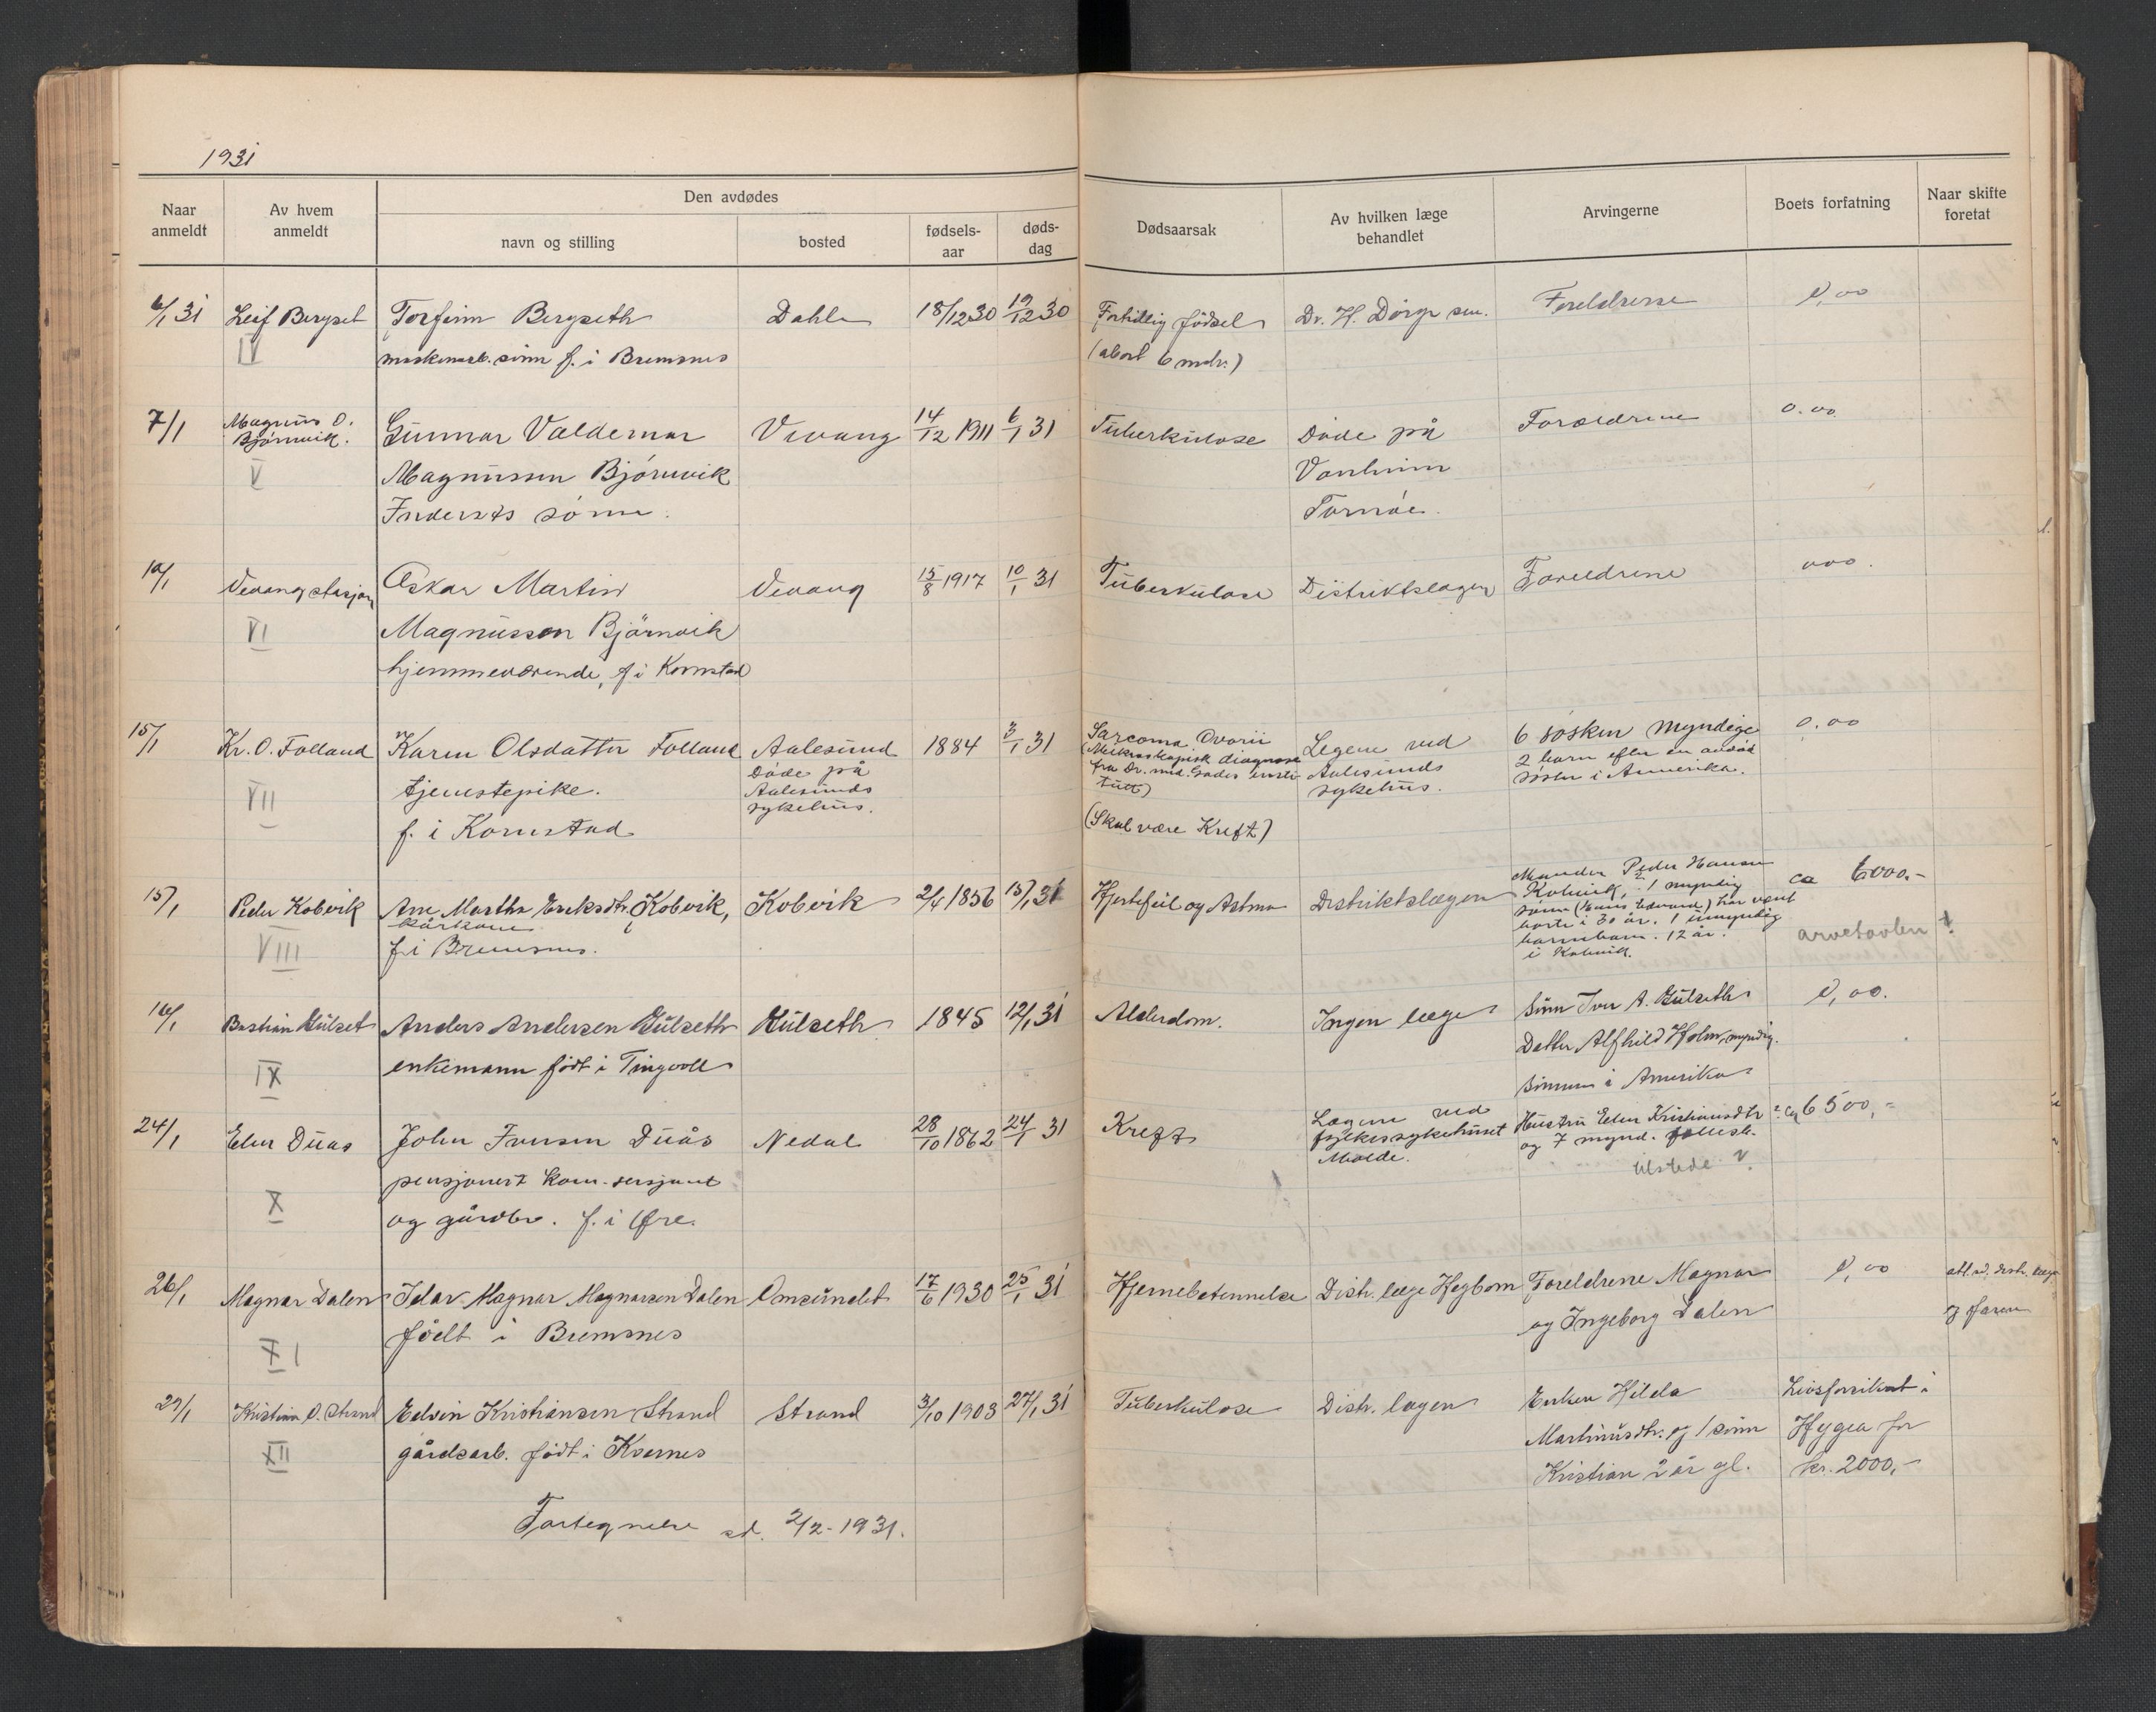 1931
Naar anmeldt
Av hvem anmeldt
Den avdødes
navn og stilling
bosted
fødsels-aar
døds-dag
Dødsaarsak
Av hvilken læge behandlet
Arvingerne
Boets forfatning
Naar skifte foretat
6/1 31 Leif Bergset Torfinn Bergseth Dahle 18/12 30 19/12 30 Fortidlig födsel Dr. H. Dörge sen. Foreldrene 0,00
IV maskinarb. sönn f. i Bremsnes (abort 6 mdr.)
7/1 Magnus O. Bjørnvik. Gunnar Valdemar Vevang 14/12 1911 6/1 31 Tuberkulose Døde på Foreldrene 0.00
V Magnussen Bjørnvik Vonheim
Inderste sønn. Tornøe.
10/1 Vevang stasjon Oskar Martin Vevang 15/8 1917 10/1 31 Tuberkulose Distriktslægen Foreldrene 000.
VI Magnussen Björnvik
hjemmeværende, f. i Kornstad
15/1 Kr. O. Folland Karen Olsdatter Folland Aalesund 1884 3/1 31 Sarcoma Ovarii Legene ved 6 søsken myndige 0.00
Døde på (Mikroskopisk diagnose 2 barn efter en avdød
VII tjenstepike. Aalesunds fra Dr. med. Gades insti- Aalesunds søster i Amerika.
sykehus. tutt) sykehus.
f. i Kornstad (Skal være Kreft)
15/1 Peder Kobvik Ane Martha Eriksdtr. Kobvik, Kobvik 2/4 1856 15/1 31 Hjertefeil og Astma Distriktslægen Manden Peder Hansen ca 6000.-
Kårkone Kobvik, 1 myndig
VIII f. i Bremsnes. sønn (Hans Edvard) har vært
borte i 30 år. 1 umyndig
barnebarn. 12 år. arvetavlen
i Kobvik.
16/1 Bastian Hulset Anders Andersen Hulseth Hulseth 1845 12/1 31 Alderdom. Ingen læge Sönn Iver A. Hulseth 0,00.
IX enkemann födt i Tingvoll Datter Alfhild Holm, myndig.
sönnen i Amerika
24/1 Elen Duås John Iversen Duås Nedal 28/10 1862 24/1 31 Kreft Lægene ved fylkessykehuset Molde. Hustru Elen Kristiansdtr ca 6500,-
og 7 mynd. fellesb.
X pensjonert kom. sersjant tilstede
og gårdbr. f. i Øre.
26/1 Magnar Dalen Idar Magnar Magnarsen Dalen Omsundet 17/6 1930 25/1 31 Hjernebetennelse Distr. læge Hegbom Foreldrene Magnar 0,00 att. ad. distr. læge
XI födt i Bremsnes og Ingeborg Dalen og faren
29/1 Kristian O. Strand Edvin Kristiansen Strand Strand 3/10 1903 27/1 31 Tuberkulose Distr. lægen Enken Hilda Livsforsikret i
XII gårdsarb. födt i Kvernes Martinusdtr. og 1 sönn Hygea for
Kristian 2 år gl. kr. 2000,-
Fortegnelse sd. 2/2-1931.